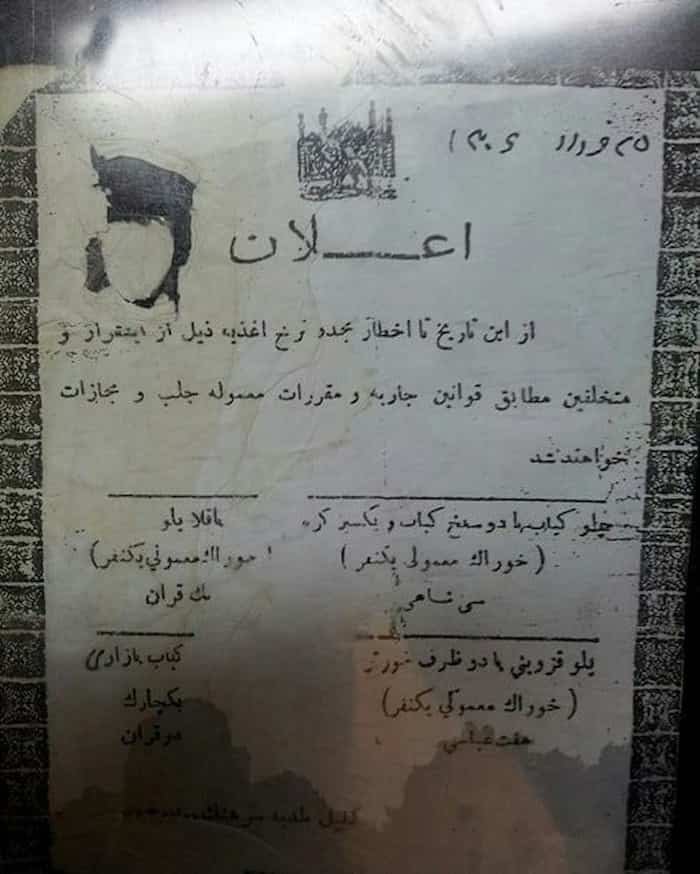 ۲۵ خرداد ۱۳۰۶
اعــــلان
از این تاریخ تا اخطار مجدد نرخ اغذیه ذیل از اینقرار و
متخلفین مطابق قوانین جاریه و مقررات معموله جلب و مجازات
خواهند شد
چلو کباب با دو سیخ کباب و یکسیر کره
(خوراك معمولی یکنفر)
سی شاهی
باقلا پلو
(خوراك معمولی یکنفر)
یك قران
پلو قزوینی با دو ظرف خورش
(خوراك معمولی یکنفر)
هفت عباسی
کباب بازاری
یکچارك
دو قران
کفیل بلدیه سرهنگ